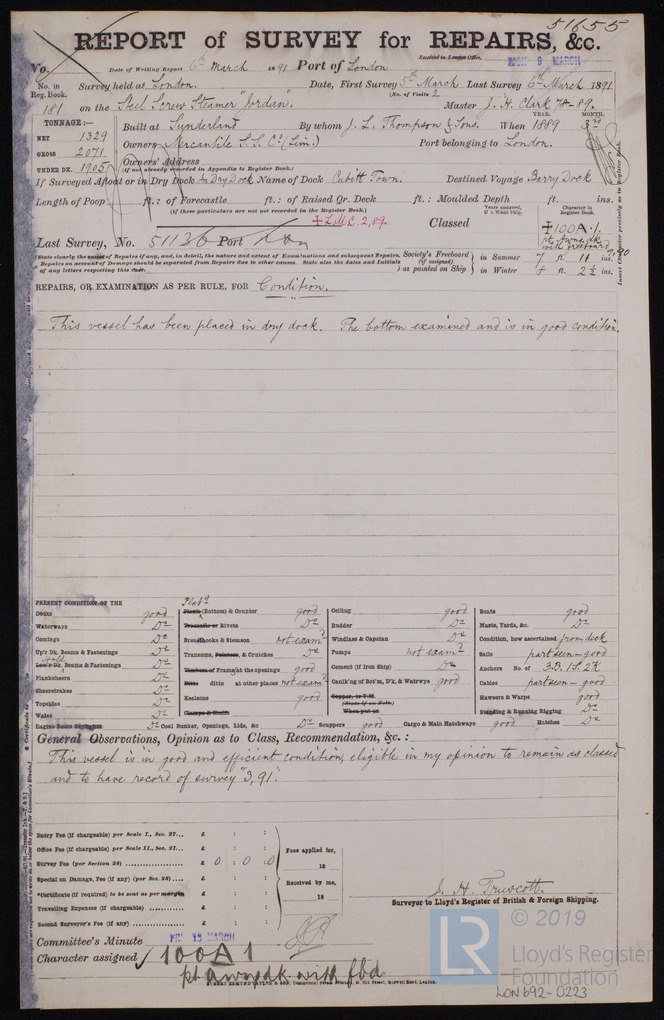 51655
REPORT of SURVEY for REPAIRS, &c.
No. Date of Writing Report 6th March 1891 Port of London Received in London Office, MON 9 MARCH
No. in Reg. Book. Survey held at London. Date, First Survey 5th March Last Survey 6th March 1891
(No. of Visits 2
181 on the Steel Screw Steamer "Jordan". Master J. H. Clark 78-89.
TONNAGE:— YEAR. MONTH.
NET 1329 Built at Sunderland By whom J. L. Thompson & Sons. When 1889 3rd
GROSS 2071 Owners Mercantile S.S. Co (Lim.) Port belonging to London.
UNDER DK. 1905 Owners' Address
(if not already recorded in Appendix to Register Book.)
If Surveyed Afloat or in Dry Dock In Dry Dock Name of Dock Cubitt Town. Destined Voyage Barry Dock
Length of Poop ft.: of Forecastle ft.: of Raised Qr. Deck ft.: Moulded Depth ft. ins.
(if these particulars are not yet recorded in the Register Book.)
Years assigned, if a Wood Ship. Character in Register Book.
✠ L.M.C. 2,89. Classed ✠100A.1.
pt awng dk with freeboard
Last Survey, No. 51136 Port Lon
State clearly the cause of Repairs if any, and, in detail, the nature and extent of Examinations and subsequent Repairs.
Repairs on account of Damage should be separated from Repairs due to other causes. State also the dates and initials
of any letters respecting this case.
Society's Freeboard (if assigned) as painted on Ship
in Summer 7 ft. 11 ins.
in Winter 8 ft. 2½ ins.
REPAIRS, OR EXAMINATION AS PER RULE, FOR Condition.
This vessel has been placed in dry dock. The bottom examined and is in good condition.
PRESENT CONDITION OF THE
Decks good
Waterways Do
Comings Do
Up'r Dk. Beams & Fastenings Do
Hold
Low'r Dk. Beams & Fastenings Do
Planksheers Do
Sheerstrakes Do
Topsides Do
Wales Do
Engine Room Skylights Do
Plats
Plank (Bottom) & Counter good
Treenails or Rivets Do
Breasthooks & Stemson not examd
Transoms, Pointers, & Crutches Do
Timbers of Frames at the openings good
Ditto ditto at other places not examd
Keelsons good
Clamps & Shelfs
Coal Bunker, Openings, Lids, &c Do
Ceiling good
Rudder Do
Windlass & Capstan Do
Pumps not examd
Cement (if Iron Ship) Do
Caulking of Bot'm, D'k, & Watrwys good
Copper, or Y.M.
(State if on Felt)
When put on
Scuppers good Cargo & Main Hatchways good Hatches Do
Boats good
Masts, Yards, &c. Do
Condition, how ascertained from deck
Sails part seen - good
Anchors No. of 3.B. 1S. 2K
Cables part seen - good
Hawsers & Warps good
Standing & Running Rigging Do
General Observations, Opinion as to Class, Recommendation, &c.:
This vessel is in good and efficient condition, eligible in my opinion to remain as classed
and to have record of survey "3,91".
Entry Fee (if chargeable) per Scale I., Sec. 27... £ : :
Office Fee (if chargeable) per Scale II., Sec. 27. £ : :
Survey Fee (per Section 28) £ 0 : 0 : 0
Special on Damage, Fee (if any) (per Sec. 28) £ : :
*Certificate (if required) to be sent as per margin £ : :
Travelling Expenses (if chargeable) £ : :
Second Surveyor's Fee (if any) £ : :
Fees applied for,
18
Received by me,
18
J. H. Truscott.
Surveyor to Lloyd's Register of British & Foreign Shipping.
Committee's Minute FRI. 13 MARCH
Character assigned 100A1
pt awng dk with fbd
LR © 2019
Lloyd's Register
Foundation
LON 692-0223